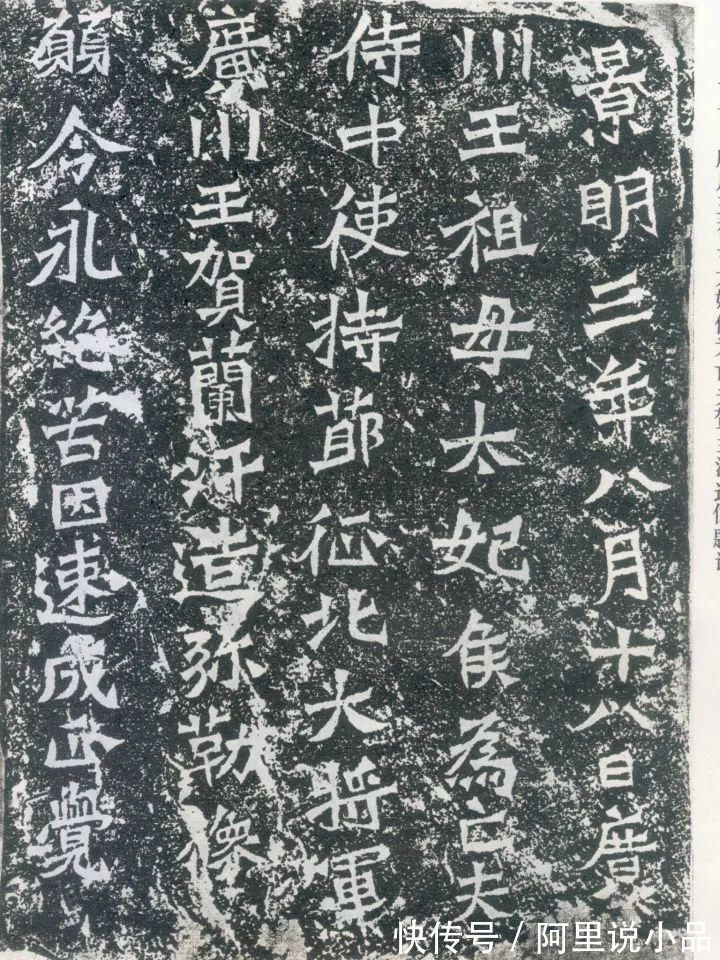 景明三年八月十八日廣
川王祖母太妃侯為亡夫
侍中使持節征北大將軍
廣川王賀蘭汗造弥勒像
願令永絕苦因速成正覺
快传号/阿里说小品